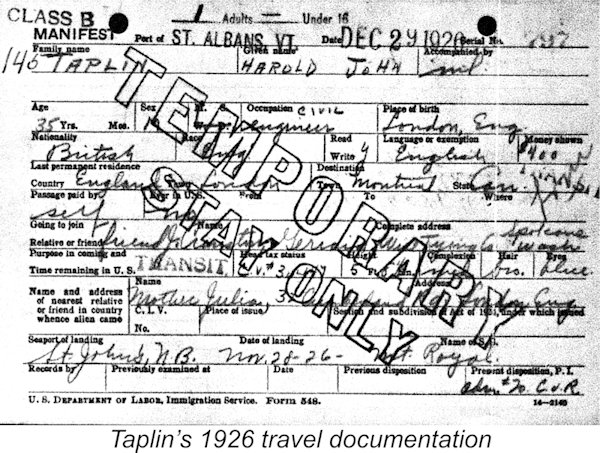 CLASS B 1 Adults — Under 16
MANIFEST Port of ST. ALBANS, VT Date DEC 29 1926 Serial No. 797
Family name Given name Accompanied by
145 TAPLIN HAROLD JOHN
TEMPORARY STAY ONLY
Age Sex M. S. Occupation CIVIL Place of birth
35 Yrs. Mos. engineer London, Eng.
Nationality Race Read Language or exemption Money shown
British Write English $400
Last permanent residence Destination
Country England Town London Town Montreal State Can.
Passage paid by Ever in U.S. From To Where
self
Going to join Name Complete address Spokane
Relative or friend friend Wash
Purpose in coming and Head tax status Height Complexion Hair Eyes
Time remaining in U.S. TRANSIT 5 Ft. bro. blue
Name and address of nearest relative or friend in country whence alien came
Name Address
Mother Julia, London Eng
C.I.V. Place of issue Section and subdivision of Act of 1924, under which joined
No.
Seaport of landing Date of landing Name of S.S.
St. Johns, N.B. Nov. 28-26- Mt. Royal.
Records by Previously examined at Date Previous disposition Present disposition, P.I.
U. S. DEPARTMENT OF LABOR, Immigration Service. Form 548. 14—2140
Taplin's 1926 travel documentation